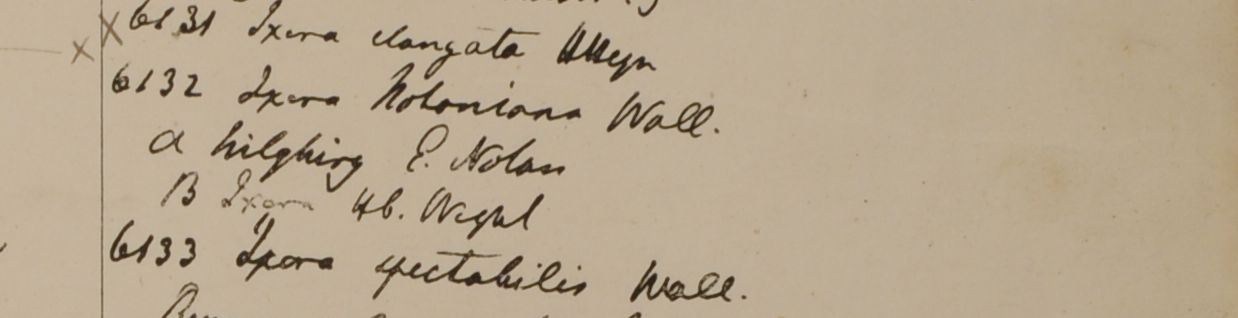 6131 Ixora elongata Heyn
6132 Ixora Notoniana Wall.
a Nilghiry E. Noton
B Ixora Hb. Wight
6133 Ixora spectabilis Wall.